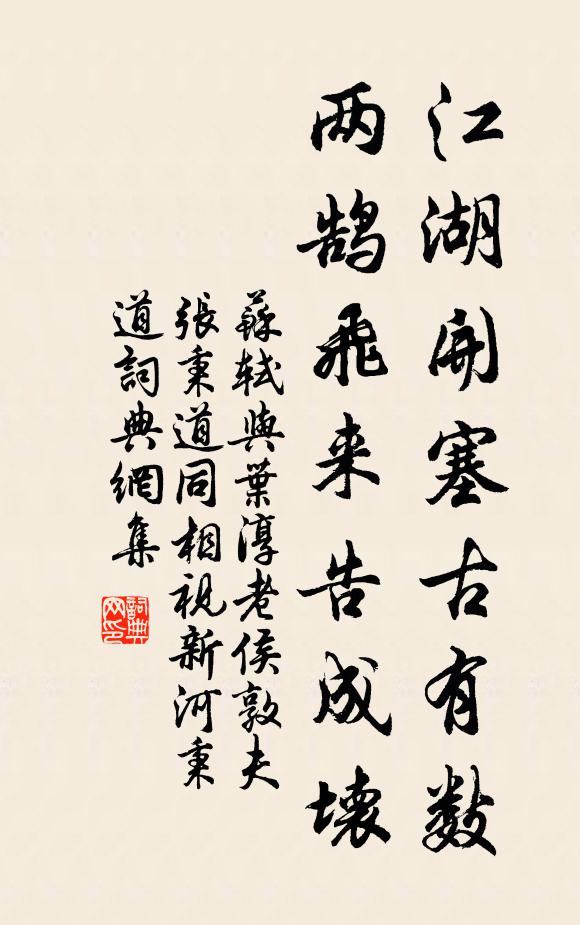 江湖開塞古有數
两鹄飛来告成壞
蘇軾與葉淳老侯敦夫
張秉道同相視新河秉
道詞典網集
詞典
网印